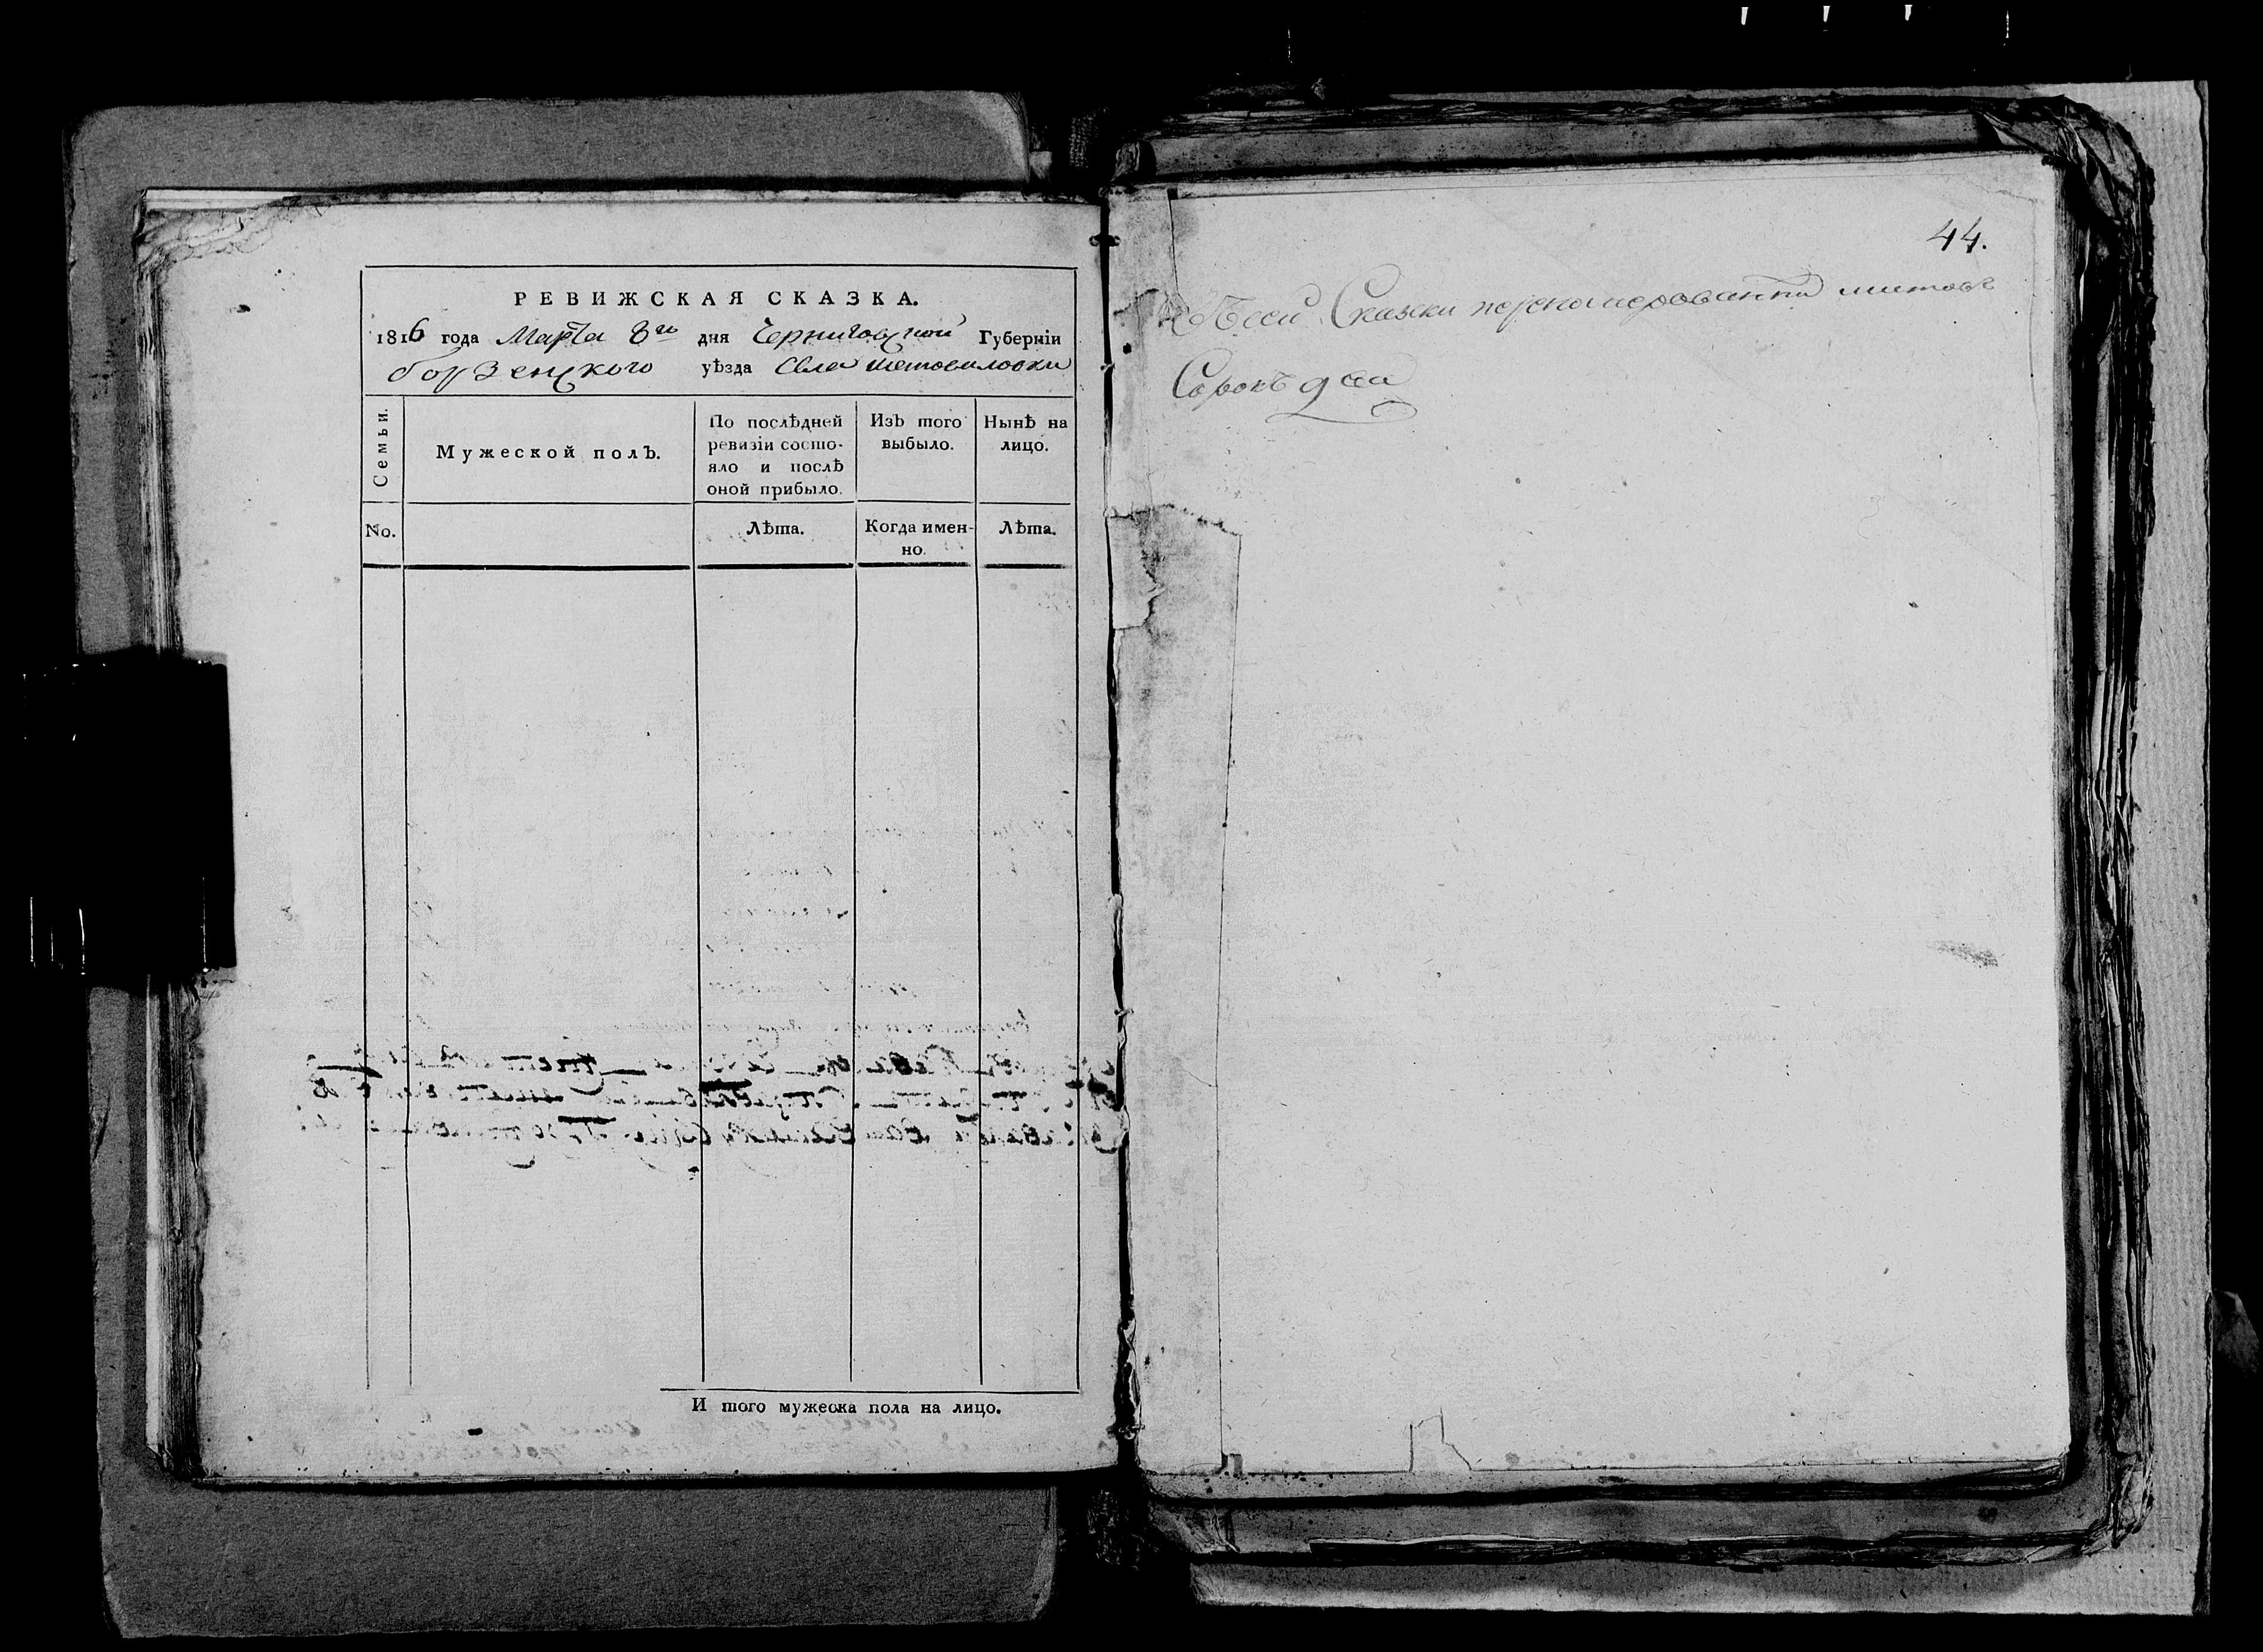 РЕВИЖСКАЯ СКАЗКА.
1816 года Марта 8го дня Черниговской Губерніи
борзенского уѣзда Села шаповаловки
Семьи.
Мужеской полЪ.
По послѣдней
ревизіи состо-
яло и послѣ
оной прибыло.
ИзЪ того
выбыло.
Нынѣ на
лицо.
No.
Лѣта.
Когда имен-
но.
Лѣта.
И того мужеска пола на лицо.
44.
Сказки листовъ
Сорокъ два